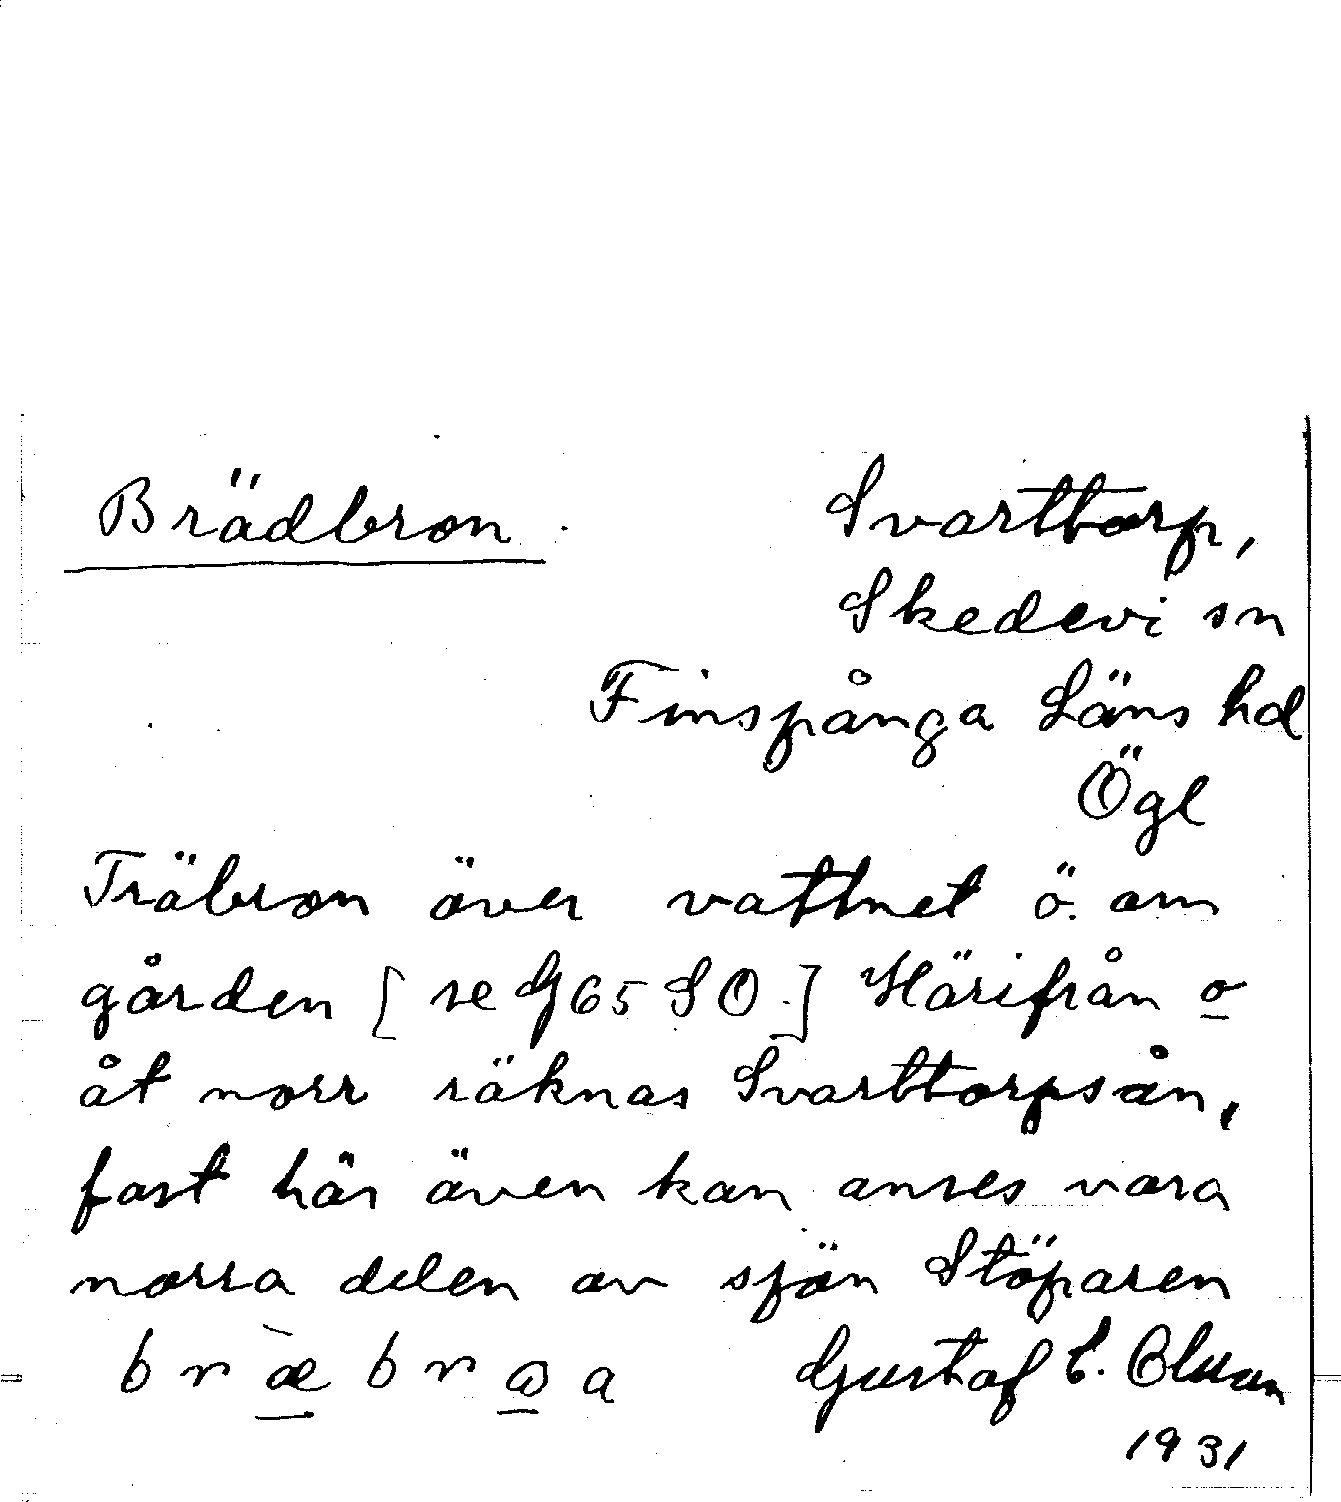 Brädbron.
Svarttorp,
Skedevi sn
Finspånga Läns hd
Ögl
Träbron över vattnet ö. om
gården [se G65 SO.] Härifrån o
åt norr räknas Svarttorpsån,
fast här även kan anses vara
norra delen av sjön Stöparen
Gustaf E. Olsson
1931